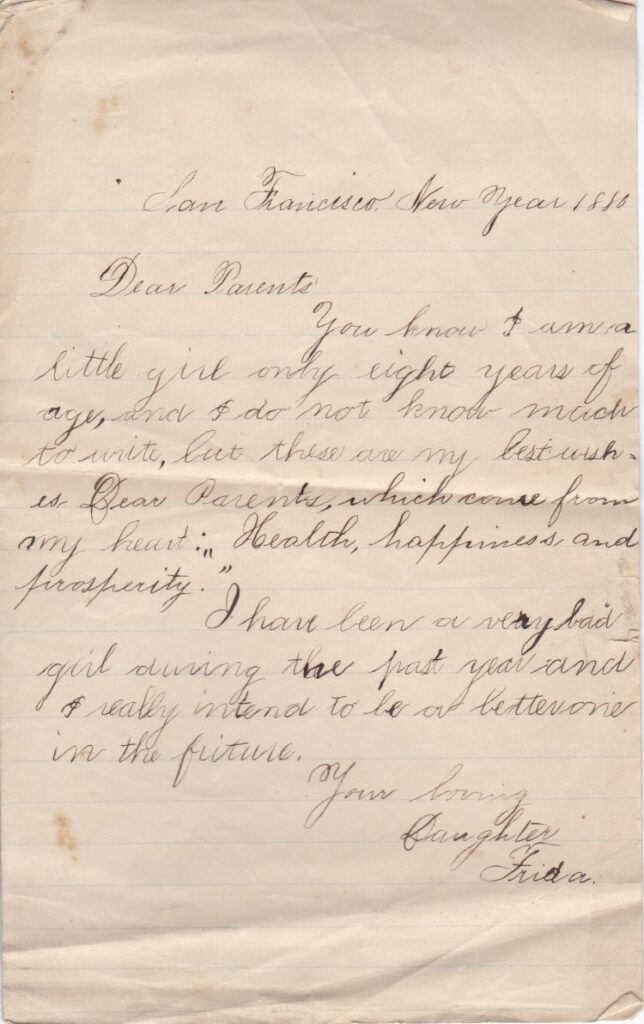 San Francisco. New Year 1880
Dear Parents
You know I am a
little girl only eight years of
age, and I do not know much
to write, but these are my best wish=
es Dear Parents, which come from
my heart: „Health, happiness and
prosperity.”
I have been a very bad
girl during the past year and
I really intend to be a better one
in the future.
Your loving
Daughter
Frida.